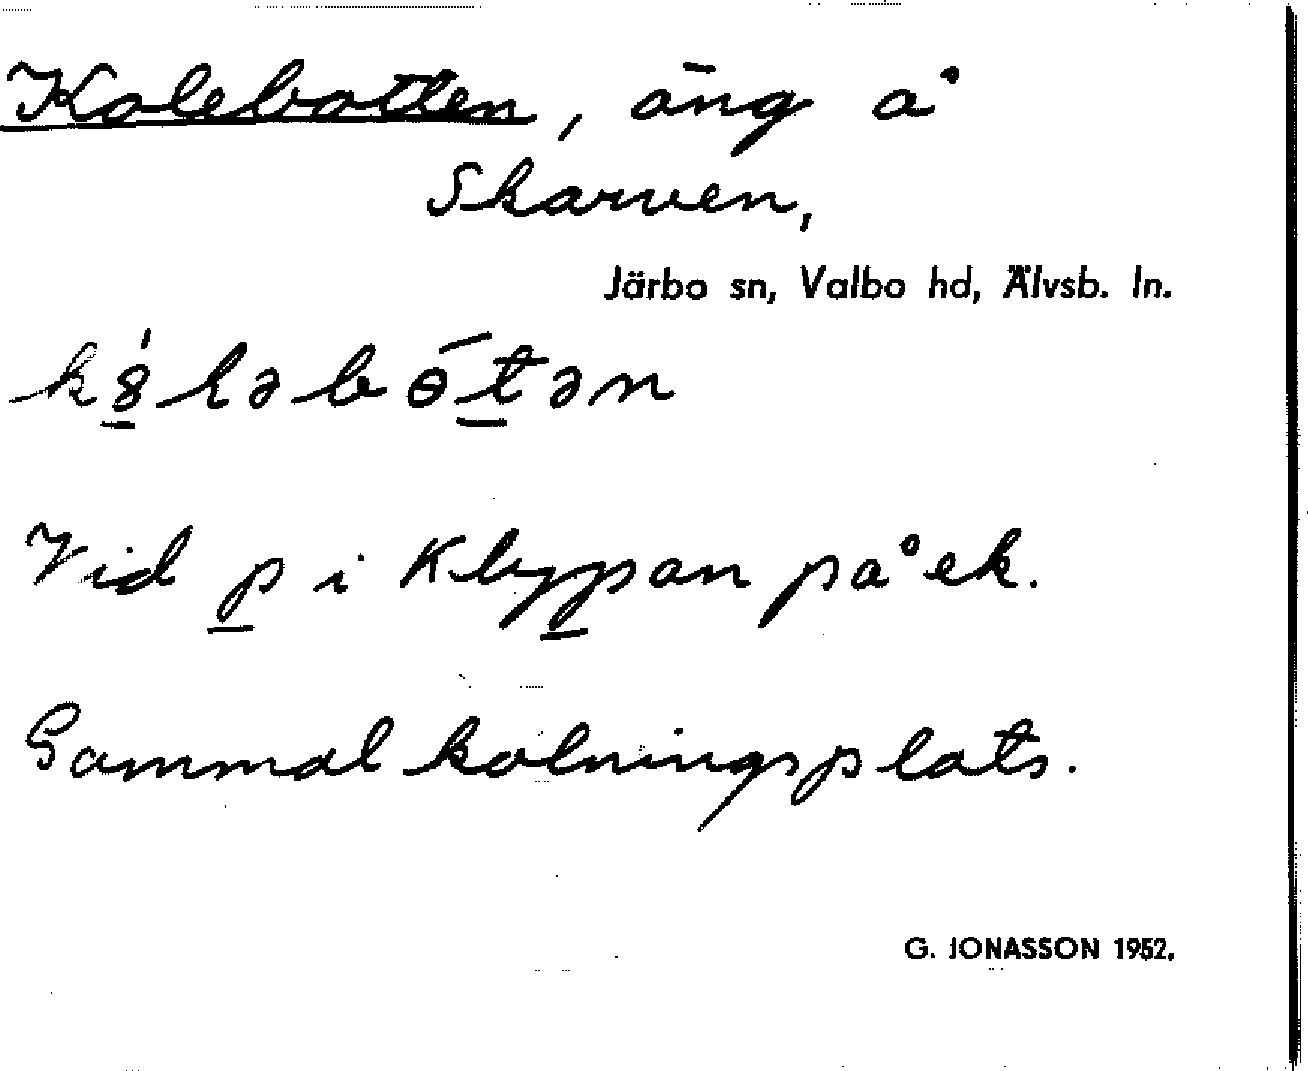 Kolebotten, äng å
Skarven,
Järbo sn, Valbo hd, Älvsb. ln.
k8́ləbɵ́tən
Vid p i Klyppan på ek.
Gammal kolningsplats.
G. JONASSON 1952.